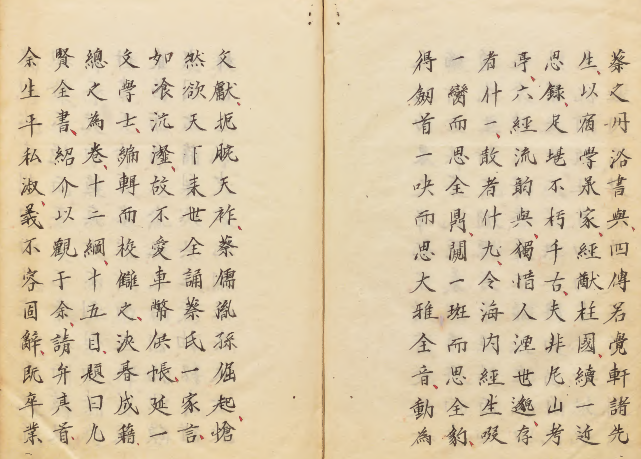 蔡之丹浴書與四傳名覺軒諸先
生以宿學承家經猷柱國續一近
思錄足堪不朽千古夫非尼山考
亭六經流韵與獨惜人湮世邈存
者什一散者什九令海内經生啜
一臠而思全鼎闚一班而思全豹
得劒首一吷而思大雅全音動為
文獻扼腕天祚蔡儒胤孫倔起愴
然欲天下来世全誦蔡氏一家言
如飡沆瀣故不愛車幣供帳延一
文學士編輯而校讎之浹暮成籍
總之為卷十二綱十五目題曰九
賢全書紹介以觀于余請弁其首
余生平私淑義不容固辭既卒業